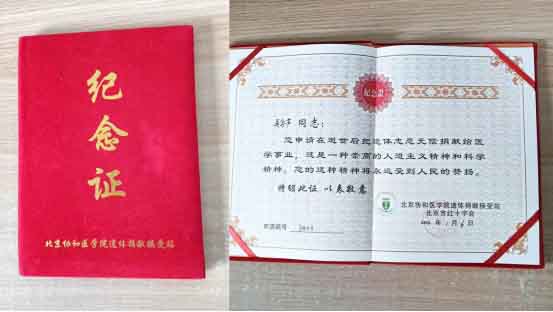 纪念证
北京协和医学院遗体捐献接受站
纪念证
同志：
您申请在逝世后把遗体志愿无偿捐献给医
学事业，这是一种崇高的人道主义精神和科学
精神，您的这种精神将永远受到人民的赞扬。
特颁此证 以表敬意
北京协和医学院遗体捐献接受站
北京市红十字会
年 月 日